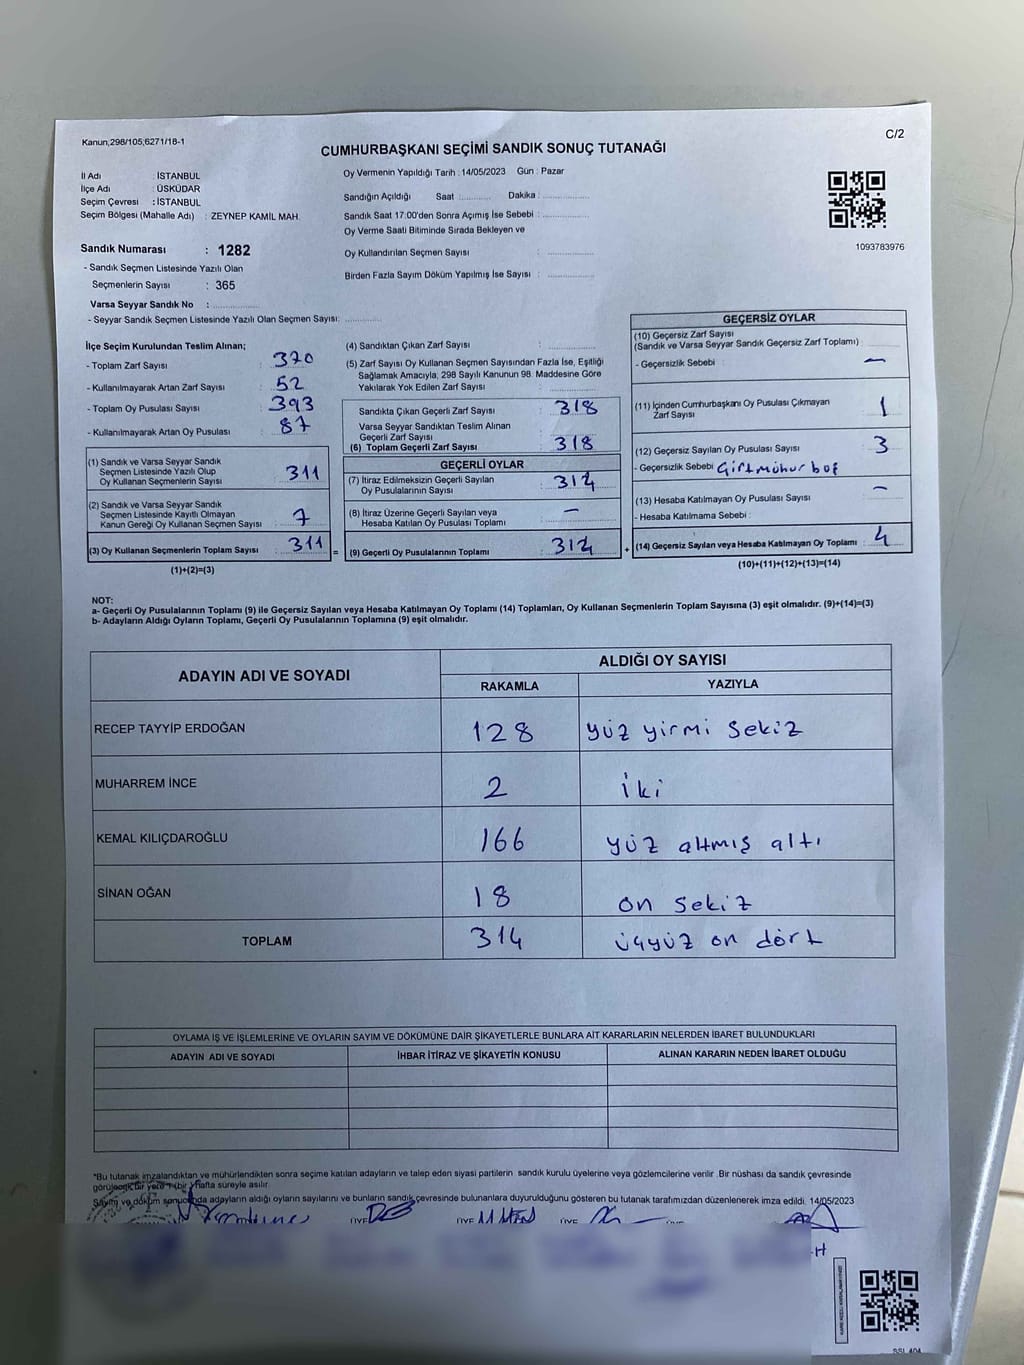 Kanun;298/105;6271/18-1
C/2
CUMHURBAŞKANI SEÇİMİ SANDIK SONUÇ TUTANAĞI
İl Adı : İSTANBUL
İlçe Adı : ÜSKÜDAR
Seçim Çevresi : İSTANBUL
Seçim Bölgesi (Mahalle Adı) : ZEYNEP KAMİL MAH.
Sandık Numarası : 1282
- Sandık Seçmen Listesinde Yazılı Olan
Seçmenlerin Sayısı : 365
Varsa Seyyar Sandık No :
- Seyyar Sandık Seçmen Listesinde Yazılı Olan Seçmen Sayısı:
Oy Vermenin Yapıldığı Tarih : 14/05/2023 Gün : Pazar
Sandığın Açıldığı Saat : Dakika :
Sandık Saat 17:00'den Sonra Açımış İse Sebebi :
Oy Verme Saati Bitiminde Sırada Bekleyen ve
Oy Kullandırılan Seçmen Sayısı :
Birden Fazla Sayım Döküm Yapılmış İse Sayısı :
1093783976
İlçe Seçim Kurulundan Teslim Alınan;
- Toplam Zarf Sayısı : 370
- Kullanılmayarak Artan Zarf Sayısı : 52
- Toplam Oy Pusulası Sayısı : 393
- Kullanılmayarak Artan Oy Pusulası : 87
(1) Sandık ve Varsa Seyyar Sandık
Seçmen Listesinde Yazılı Olup
Oy Kullanan Seçmenlerin Sayısı : 311
(2) Sandık ve Varsa Seyyar Sandık
Seçmen Listesinde Kayıtlı Olmayan
Kanun Gereği Oy Kullanan Seçmen Sayısı : 7
(3) Oy Kullanan Seçmenlerin Toplam Sayısı : 311
(1)+(2)=(3)
(4) Sandıktan Çıkan Zarf Sayısı :
(5) Zarf Sayısı Oy Kullanan Seçmen Sayısından Fazla İse, Eşitliği
Sağlamak Amacıyla, 298 Sayılı Kanunun 98. Maddesine Göre
Yakılarak Yok Edilen Zarf Sayısı :
Sandıkta Çıkan Geçerli Zarf Sayısı : 318
Varsa Seyyar Sandıktan Teslim Alınan
Geçerli Zarf Sayısı :
(6) Toplam Geçerli Zarf Sayısı : 318
GEÇERLİ OYLAR
(7) İtiraz Edilmeksizin Geçerli Sayılan
Oy Pusulalarının Sayısı : 314
(8) İtiraz Üzerine Geçerli Sayılan veya
Hesaba Katılan Oy Pusulası Toplamı : –
= (9) Geçerli Oy Pusulalarının Toplamı : 314
GEÇERSİZ OYLAR
(10) Geçersiz Zarf Sayısı
(Sandık ve Varsa Seyyar Sandık Geçersiz Zarf Toplamı)
- Geçersizlik Sebebi : –
(11) İçinden Cumhurbaşkanı Oy Pusulası Çıkmayan
Zarf Sayısı : 1
(12) Geçersiz Sayılan Oy Pusulası Sayısı : 3
- Geçersizlik Sebebi Çift mühür boş
(13) Hesaba Katılmayan Oy Pusulası Sayısı : –
- Hesaba Katılmama Sebebi :
+ (14) Geçersiz Sayılan veya Hesaba Katılmayan Oy Toplamı : 4
(10)+(11)+(12)+(13)=(14)
NOT:
a- Geçerli Oy Pusulalarının Toplamı (9) ile Geçersiz Sayılan veya Hesaba Katılmayan Oy Toplamı (14) Toplamları, Oy Kullanan Seçmenlerin Toplam Sayısına (3) eşit olmalıdır. (9)+(14)=(3)
b- Adayların Aldığı Oyların Toplamı, Geçerli Oy Pusulalarının Toplamına (9) eşit olmalıdır.
ADAYIN ADI VE SOYADI
ALDIĞI OY SAYISI
RAKAMLA YAZIYLA
RECEP TAYYİP ERDOĞAN 128 yüz yirmi sekiz
MUHARREM İNCE 2 iki
KEMAL KILIÇDAROĞLU 166 yüz altmış altı
SİNAN OĞAN 18 on sekiz
TOPLAM 314 üçyüz on dört
OYLAMA İŞ VE İŞLEMLERİNE VE OYLARIN SAYIM VE DÖKÜMÜNE DAİR ŞİKAYETLERLE BUNLARA AİT KARARLARIN NELERDEN İBARET BULUNDUKLARI
ADAYIN ADI VE SOYADI İHBAR İTİRAZ VE ŞİKAYETİN KONUSU ALINAN KARARIN NEDEN İBARET OLDUĞU
*Bu tutanak imzalandıktan ve mühürlendikten sonra seçime katılan adayların ve talep eden siyasi partilerin sandık kurulu üyelerine veya gözlemcilerine verilir. Bir nüshası da sandık çevresinde
görülecek bir yere 1 (bir) hafta süreyle asılır.
Sayım ve döküm sonucunda adayların aldığı oyların sayılarını ve bunların sandık çevresinde bulunanlara duyurulduğunu gösteren bu tutanak tarafımızdan düzenlenerek imza edildi. 14/05/2023
ÜYE ÜYE ÜYE ÜYE